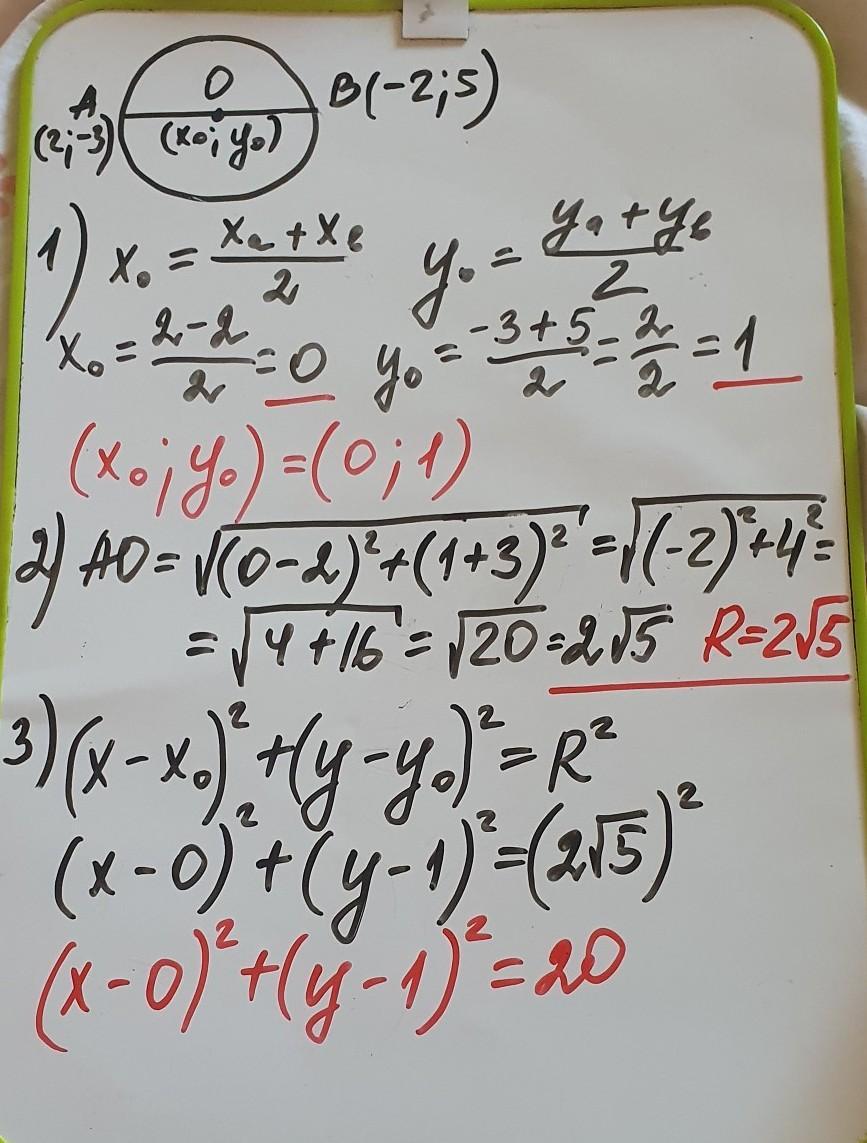 O
A
B(-2;5)
(2;-3)
(x₀; y₀)
1) x₀ = (xₐ + xв)/2 y₀ = (yₐ + yв)/2
x₀ = (2-2)/2 = 0 y₀ = (-3+5)/2 = 2/2 = 1
(x₀; y₀) = (0; 1)
2) AO = √((0-2)² + (1+3)²) = √((-2)² + 4²) =
= √(4+16) = √20 = 2√5 R=2√5
3) (x-x₀)² + (y-y₀)² = R²
(x-0)² + (y-1)² = (2√5)²
(x-0)² + (y-1)² = 20